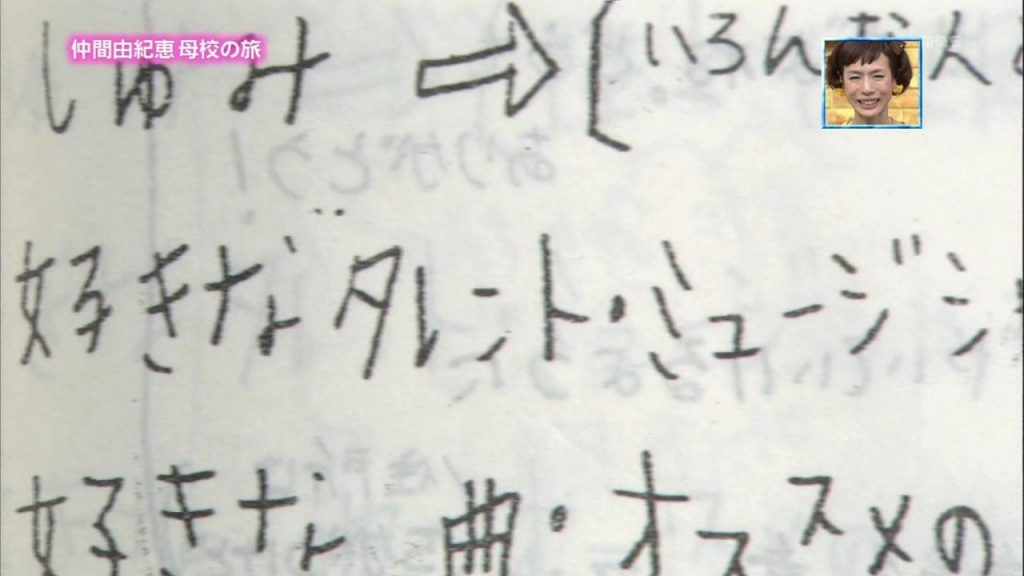 仲間由紀恵 母校の旅
しゅみ ⇨ [いろんな人
好きなタレント・ミュージシ
好きな 曲・オススメの
ありがとう!